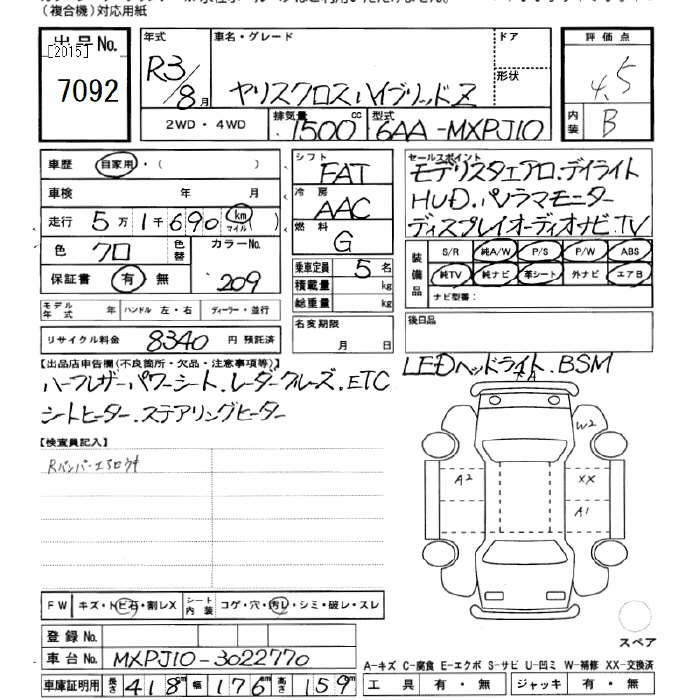 （複合機）対応用紙
出品No.
[2015]
7092
年式
R3/8月
車名・グレード
ヤリスクロスハイブリッドZ
ドア
形状
評価点
4.5
内装
B
2WD・4WD
排気量
1500cc
型式
6AA-MXPJ10
車歴 自家用・（ ）
車検 年 月
走行 5万1千690 km マイル
色 クロ 色替
カラーNo.
209
保証書 有 無
モデル年式 年 ハンドル 左・右 ディーラー・並行
リサイクル料金 8340 円 預託済
シフト
FAT
冷房
AAC
燃料
G
乗車定員 5名
積載量 kg
総重量 kg
名変期限
月 日
セールスポイント
モデリスタエアロ.デイライト
HUD.パノラマモニター
ディスプレイオーディオナビ.TV
装備品
S/R 純A/W P/S P/W ABS
純TV 純ナビ 革シート 外ナビ エアB
ナビ型番：
後日品
LEDヘッドライト.BSM
【出品店申告欄（不良箇所・欠品・注意事項等）】
ハーフレザーパワーシート.レーダークルーズ.ETC
シートヒーター.ステアリングヒーター
【検査員記入】
RバンパーエアロウキA
W2
A2
XX
A1
FW キズ・トビ石・割レX シート内装 コゲ・穴・汚レ・シミ・破レ・スレ
登録No.
車台No. MXPJ10-3022770
車庫証明用 長さ 418cm 幅 176cm 高さ 159cm
スペア
A-キズ C-腐食 E-エクボ S-サビ U-凹ミ W-補修 XX-交換済
工具 有・無 ジャッキ 有・無